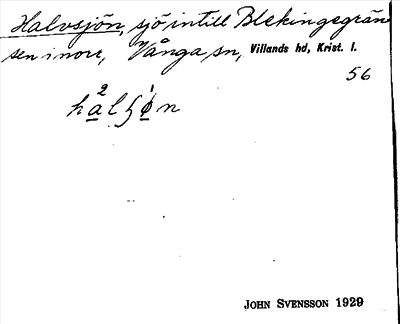 Halvsjön, sjö intill Blekingegrän
sen i norr, Vånga sn, Villands hd, Krist. l.
56
halʃøn
JOHN SVENSSON 1929